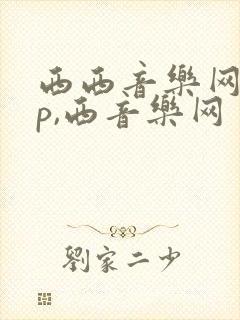 西西音樂网
p,西音樂网
劉家二少